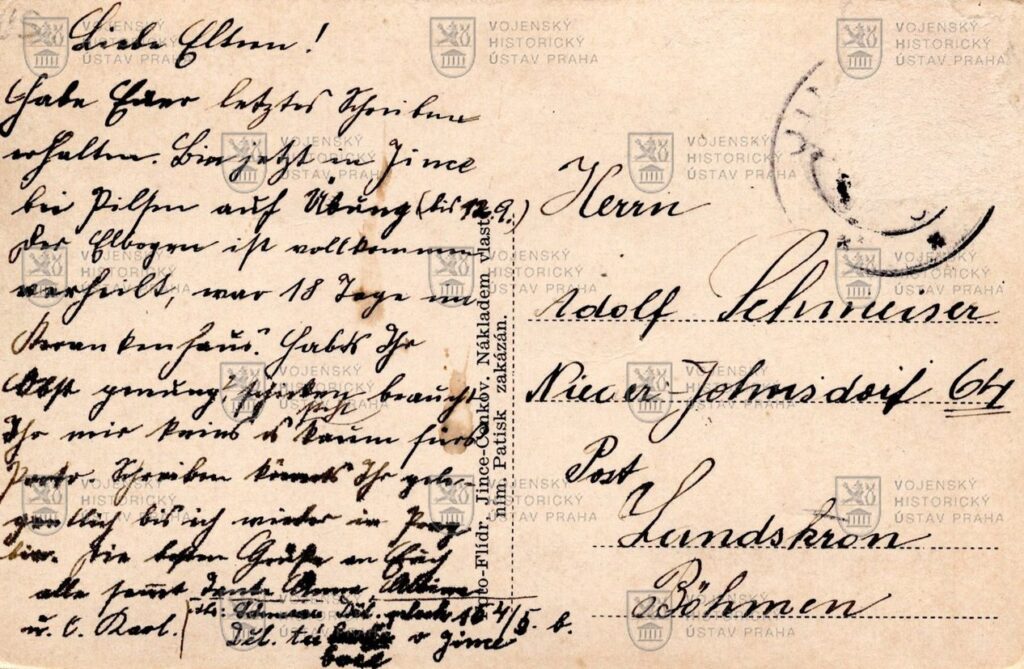 Liebe Eltern!
Habe Euer letztes Schreiben
erhalten. Bin jetzt in Jince
bei Pilsen auf Übung (bis 12.9.)
Der Elbogen ist vollkommen
verheilt, war 18 Tage im
Krankenhaus. Habts Ihr
Obst genung, schicken braucht
Ihr mir keins es steht kaum fürs
Porto. Schreiben könnts Ihr gele-
gentlich bis ich wieder in Prag
bin. Die besten Grüße an Euch
alle samt Tante Anna, Albine
u. O. Karl.
Schmeiser Děl. pluck 10 4/5. b.
Děl. v Jince
Foto-Flídr, Jince-Čenkov. Nákladem vlast-
ním. Patisk zakázán.
Herrn
Adolf Schmeiser
Nieder-Johnsdorf 64
Post
Landskron
Böhmen
VOJENSKÝ
HISTORICKÝ
ÚSTAV PRAHA